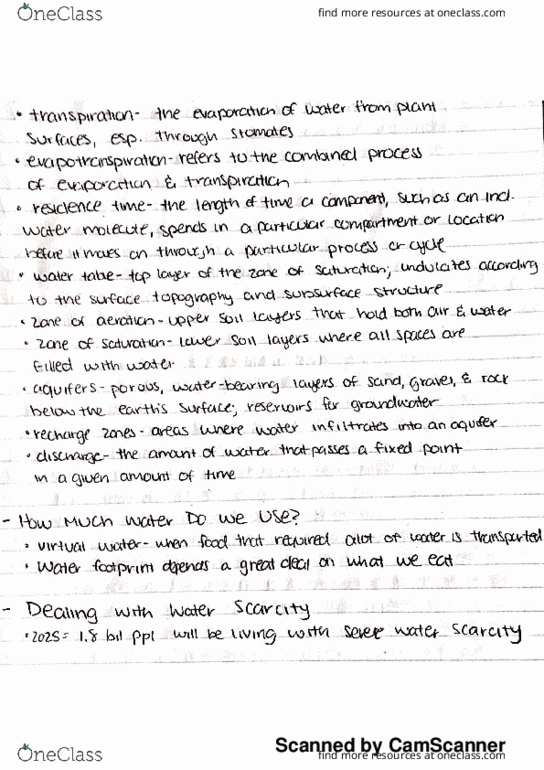 OneClass
find more resources at oneclass.com
• transpiration- the evaporation of water from plant
surfaces, esp. through stomates
• evapotranspiration- refers to the combined process
of evaporation & transpiration
• residence time- the length of time a component, such as an ind.
water molecule, spends in a particular compartment or location
before it moves on through a particular process or cycle
• water table- top layer of the zone of saturation; undulates according
to the surface topography and subsurface structure
• zone of aeration- upper soil layers that hold both air & water
• zone of saturation- lower soil layers where all spaces are
filled with water
• aquifers- porous, water-bearing layers of sand, gravel, & rock
below the earth's surface; reservoirs for groundwater
• recharge zones- areas where water infiltrates into an aquifer
• discharge- the amount of water that passes a fixed point
in a given amount of time
- How Much Water Do We Use?
• virtual water- when food that required alot of water is transported
• Water footprint depends a great deal on what we eat
- Dealing with Water Scarcity
• 2025= 1.8 bil ppl will be living with severe water scarcity
Scanned by CamScanner
OneClass
find more resources at oneclass.com